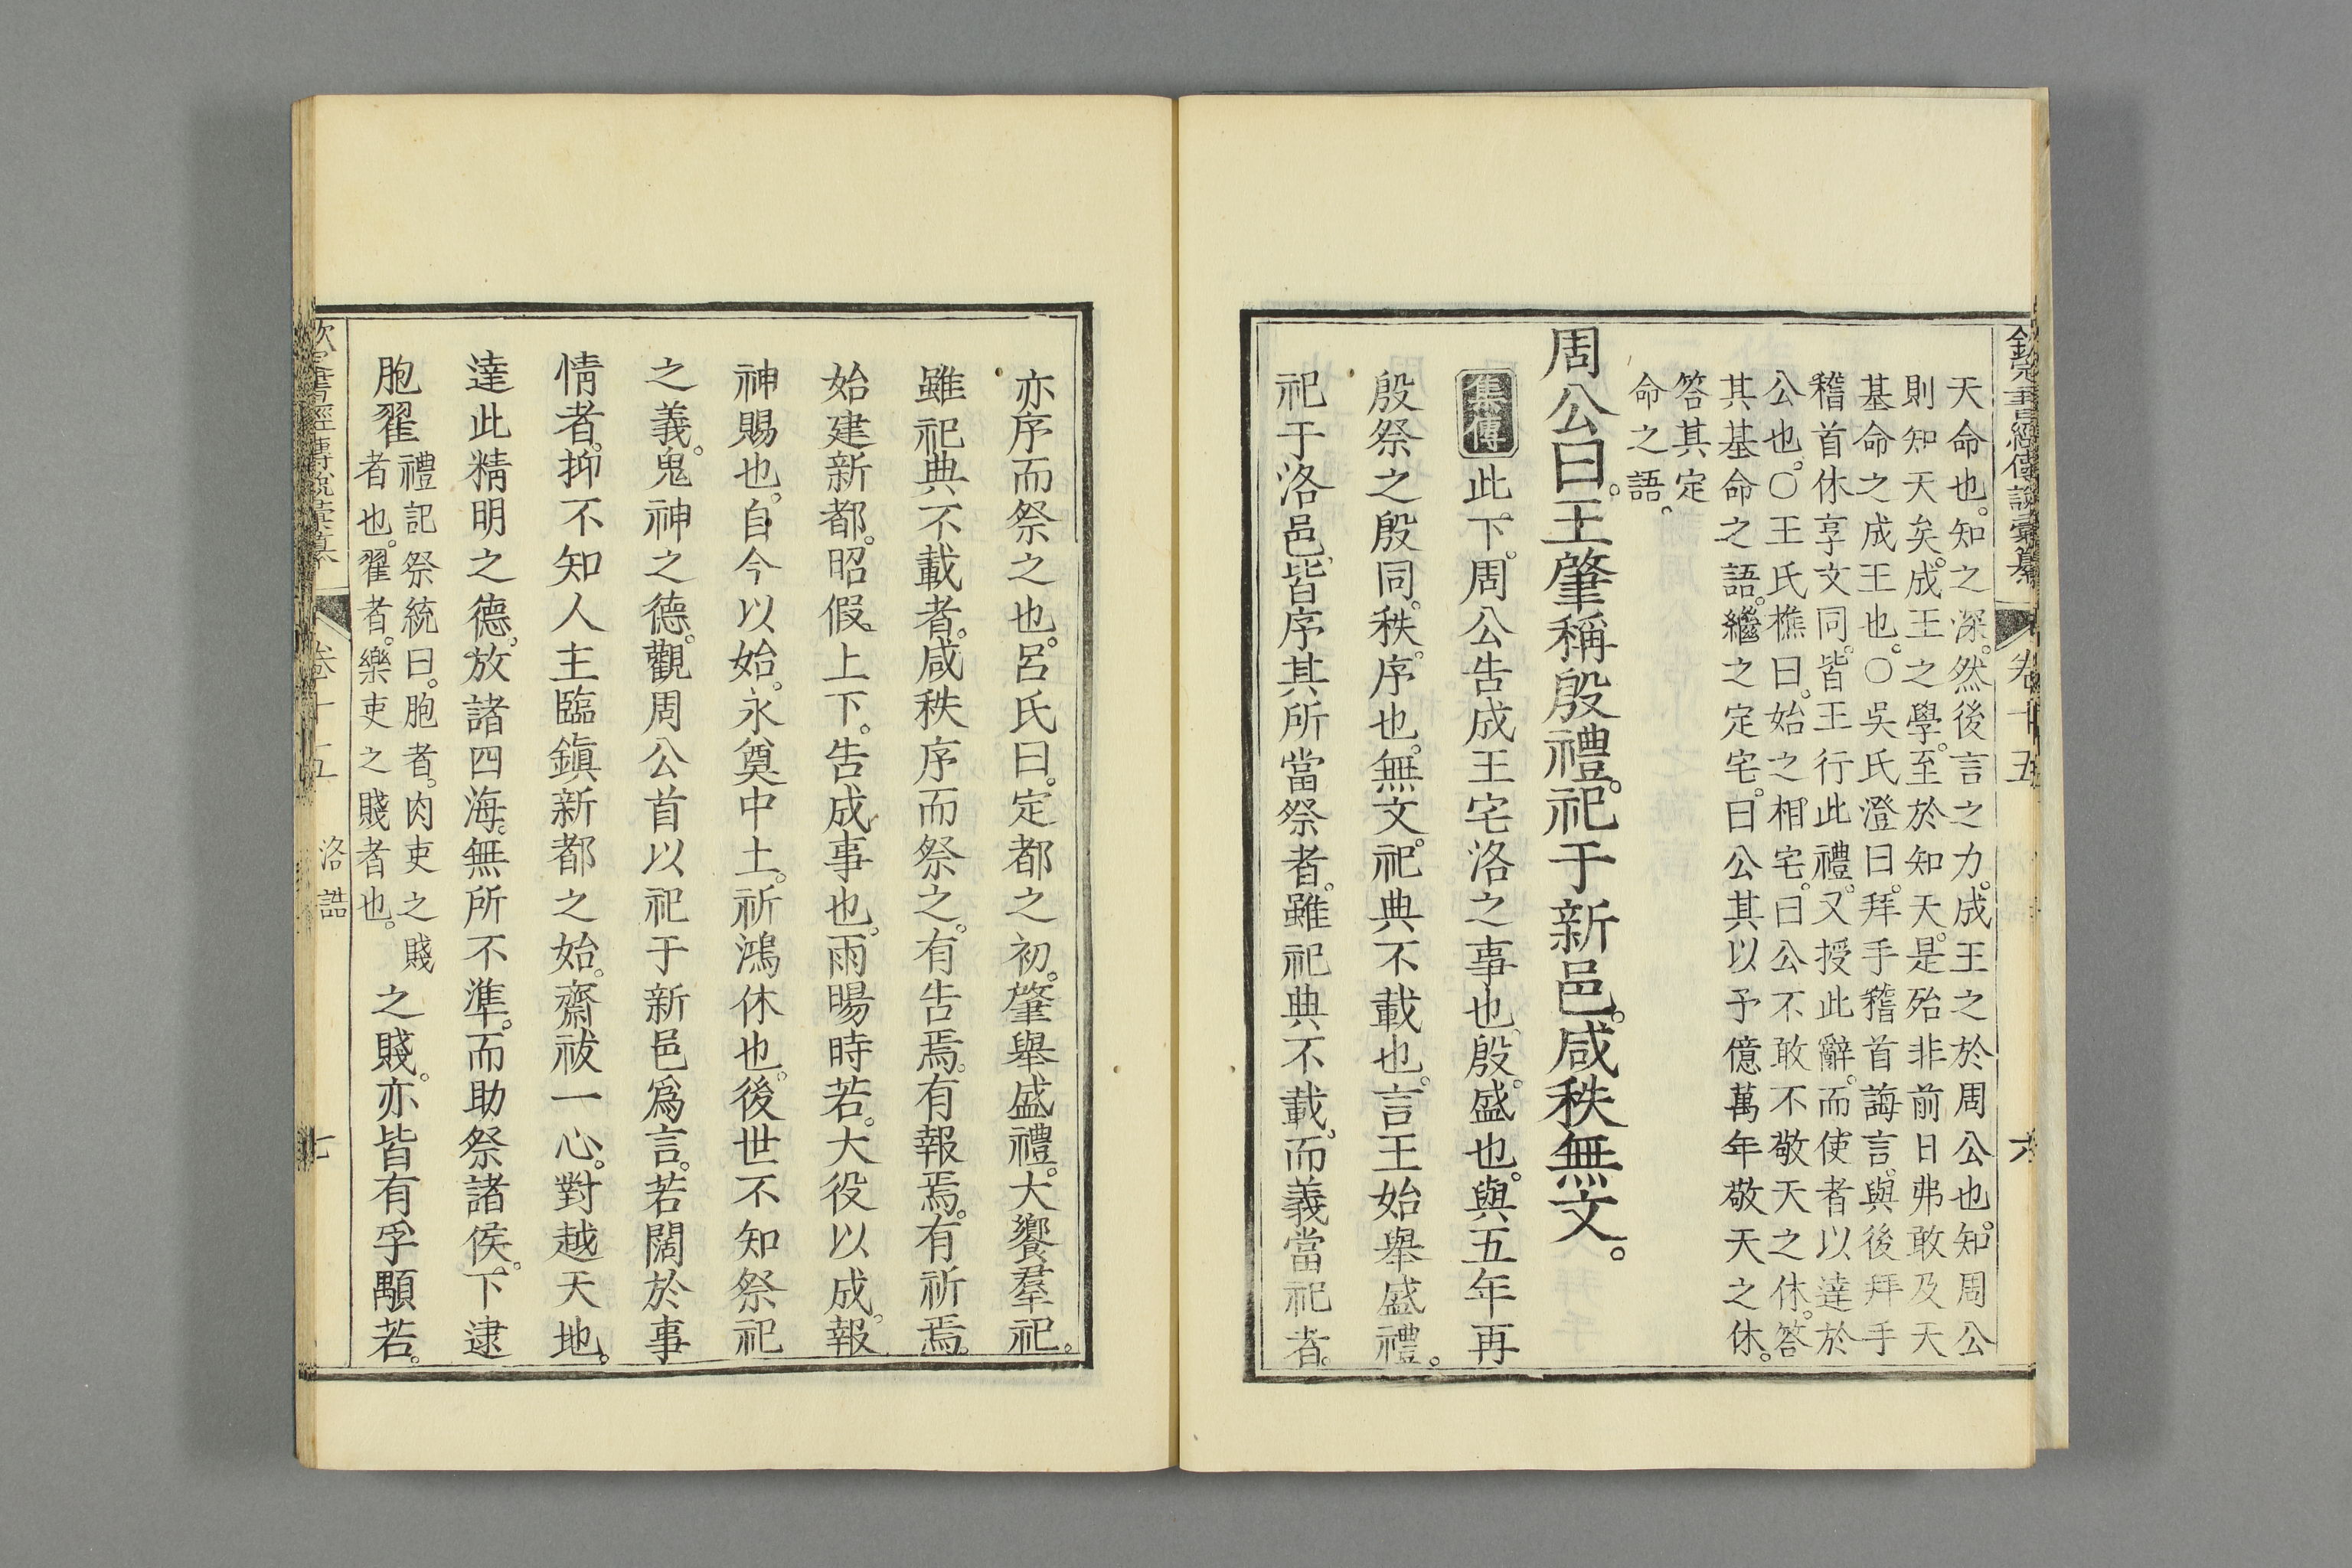 欽定書經傳說彙纂 卷十五 六
天命也。知之深。然後言之力。成王之於周公也。知周公
則知天矣。成王之學。至於知天。是殆非前日弗敢及天
基命之成王也。○吳氏澄曰。拜手稽首誨言。與後拜手
稽首休享文同。皆王行此禮。又授此辭。而使者以達於
公也。○王氏樵曰。始之相宅。曰公不敢不敬天之休。答
其基命之語。繼之定宅。曰公其以予億萬年敬天之休。
答其定
命之語。
周公曰。王肇稱殷禮。祀于新邑。咸秩無文。
集傳 此下。周公告成王宅洛之事也。殷。盛也。與五年再
殷祭之殷同。秩。序也。無文。祀典不載也。言王始舉盛禮。
祀于洛邑。皆序其所當祭者。雖祀典不載。而義當祀者。
亦序而祭之也。呂氏曰。定都之初。肇舉盛禮。大饗羣祀。
雖祀典不載者。咸秩序而祭之。有告焉。有報焉。有祈焉。
始建新都。昭假上下。告成事也。雨暘時若。大役以成。報
神賜也。自今以始。永奠中土。祈鴻休也。後世不知祭祀
之義。鬼神之德。觀周公首以祀于新邑爲言。若闊於事
情者。抑不知人主臨鎭新都之始。齋祓一心。對越天地。
達此精明之德。放諸四海。無所不準。而助祭諸侯。下逮
胞翟
禮記祭統曰。胞者。肉吏之賤
者也。翟者。樂吏之賤者也。
之賤。亦皆有孚顒若。
欽定書經傳說彙纂 卷十五 洛誥 七